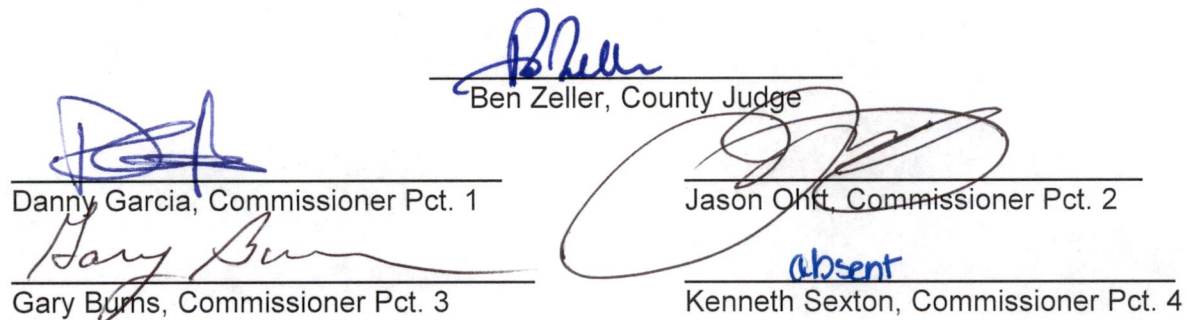 Ben Zeller
Ben Zeller, County Judge
Danny Garcia, Commissioner Pct. 1
Jason Ohrt, Commissioner Pct. 2
Gary Burns
absent
Gary Burns, Commissioner Pct. 3
Kenneth Sexton, Commissioner Pct. 4